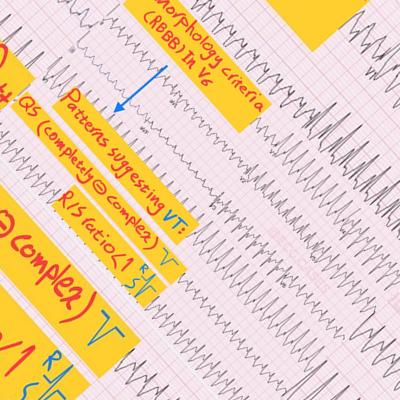 morphology criteria
(RBBB) In V6
Patterns suggesting VT:
QS (completely ⊖ complex)
R/S ratio < 1 R
S
⊖ complex)
/1 R
S